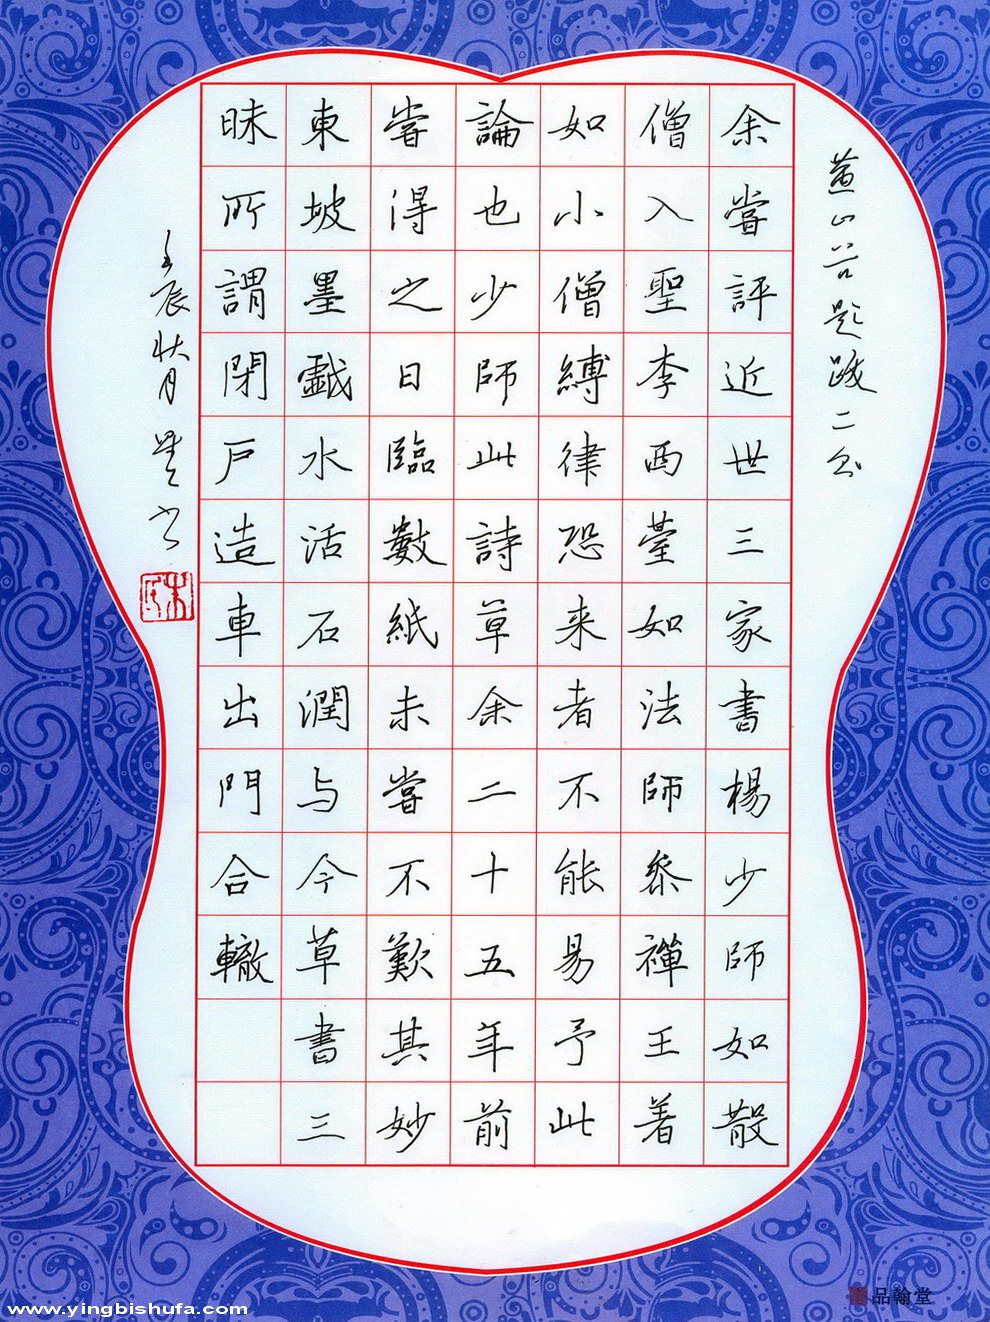 黄山谷題跋二
余嘗評近世三家書楊少師如散
僧入聖李西臺如法師叅禪王著
如小僧縛律恐来者不能易予此
論也少師此詩草余二十五年前
嘗得之日臨數紙未嘗不歎其妙
東坡墨戲水活石潤与今草書三
昧所謂閉戶造車出門合轍
壬辰壯月书
www.yingbishufa.com
品翰堂